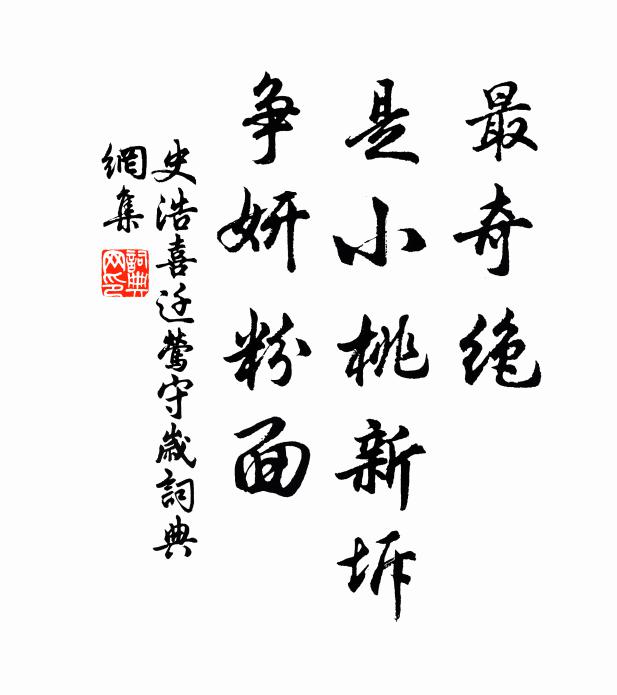 最奇绝
是小桃新坼
争妍粉面
史浩喜迁莺守歲詞典
網集
詞典网印